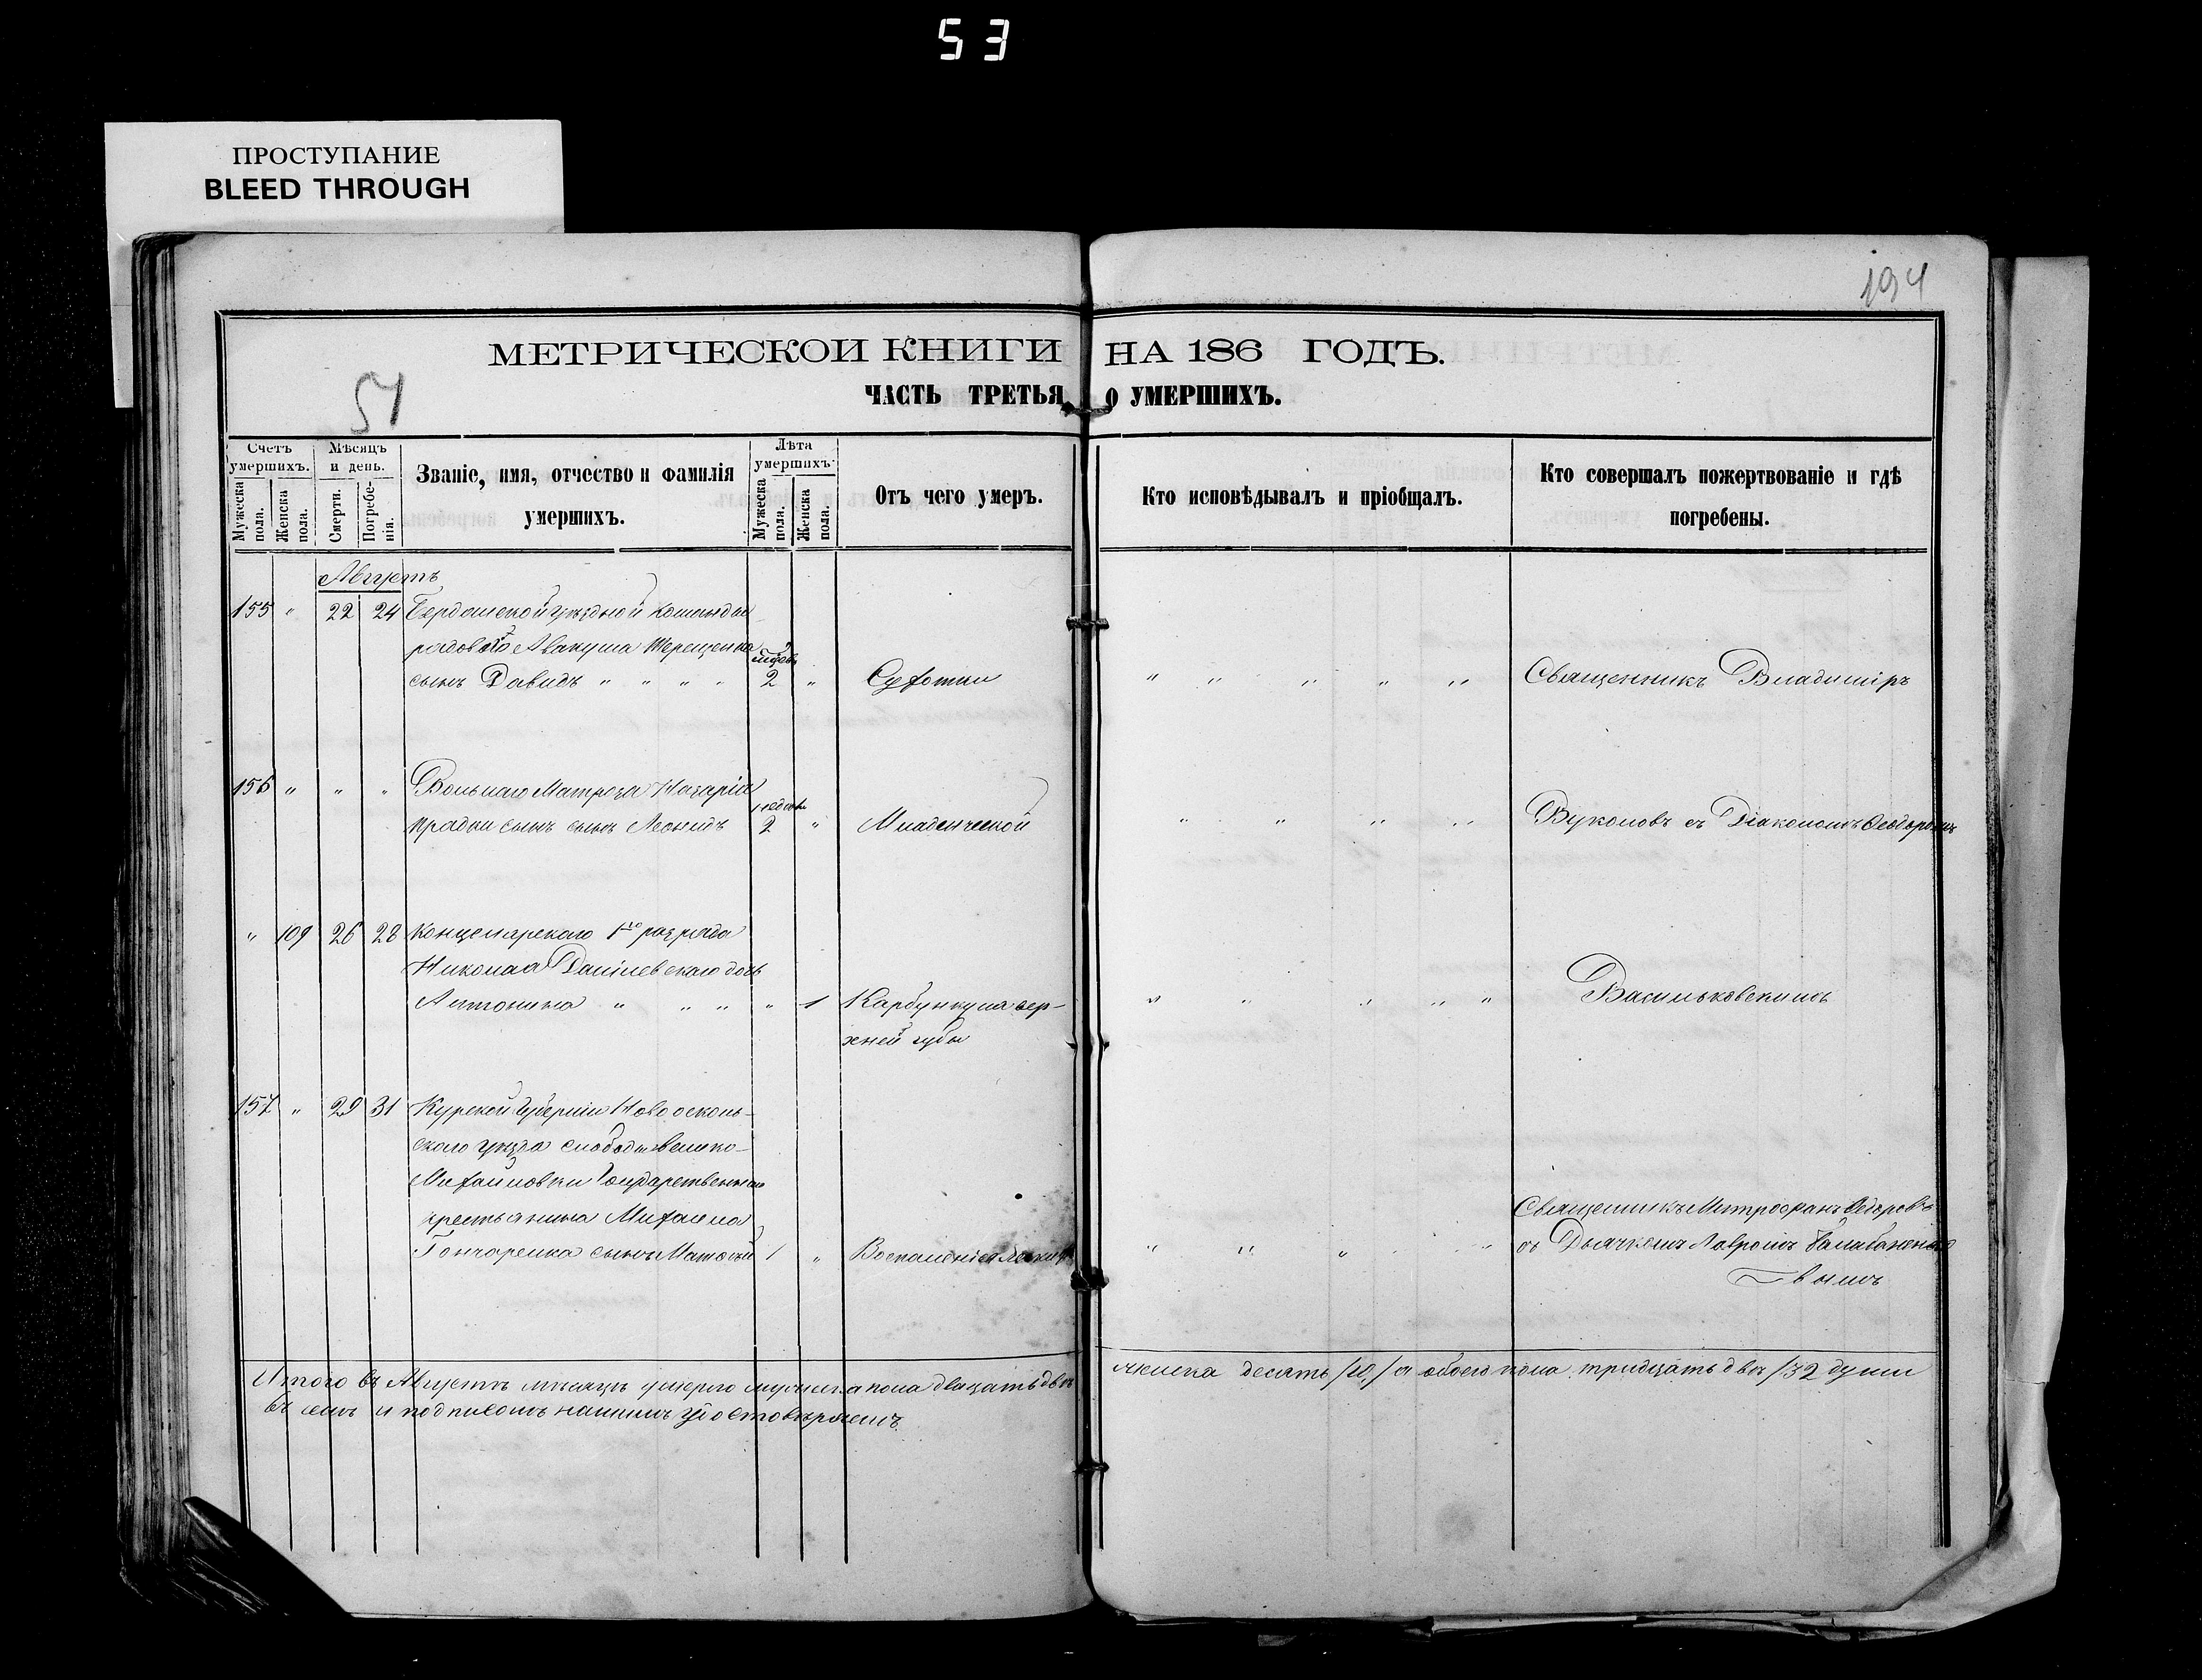 53
ПРОСТУПАНИЕ
BLEED THROUGH
194
МЕТРИЧЕСКОЙ КНИГИ НА 186 ГОДЪ.
51
ЧАСТЬ ТРЕТЬЯ О УМЕРШИХЪ.
Счетъ умершихъ.
Мужеска пола.
Женска пола.
Мѣсяцъ и день.
Смерти.
Погребенія.
Званіе, имя, отчество и фамилія умершихъ.
Лѣта умершихъ.
Мужеска пола.
Женска пола.
Отъ чего умеръ.
Кто исповѣдывалъ и пріобщалъ.
Кто совершалъ пожертвованіе и гдѣ погребены.
Августъ
155 " 22 24 уѣздной команды
рядоваго Авакума Терещенка
сынъ Давидъ " " " " 2 " Сухотки " " " " " Священникъ Владиміръ
156 " " " Вольнаго Матроза Назарія
сынъ Леонидъ 2 " Младенческой " " " " Вуколовъ съ Діакономъ Ѳеодоромъ
" 109 26 28 Канцелярскаго 1го разряда
Николая Данілевскаго дочь
Антонина " " " " 1 Карбункула вер- " " " " " Васильковскимъ
хней губы
157 " 29 31 Курской Губерніи Новооскольскаго
уѣзда слободы Велико-
Михайловки Государственнаго
крестьянина Михаила
Гончаренка сынъ 1 " Воспаленія " " " " Священникъ Митрофанъ
съ Дьячкомъ Лавромъ
вымъ
Итого въ Августѣ мѣсяцѣ умерло мужеска пола двадцать два женска десять /10,/ а обоего пола тридцать два /32 души
въ чемъ и подписомъ нашимъ удостовѣряемъ.